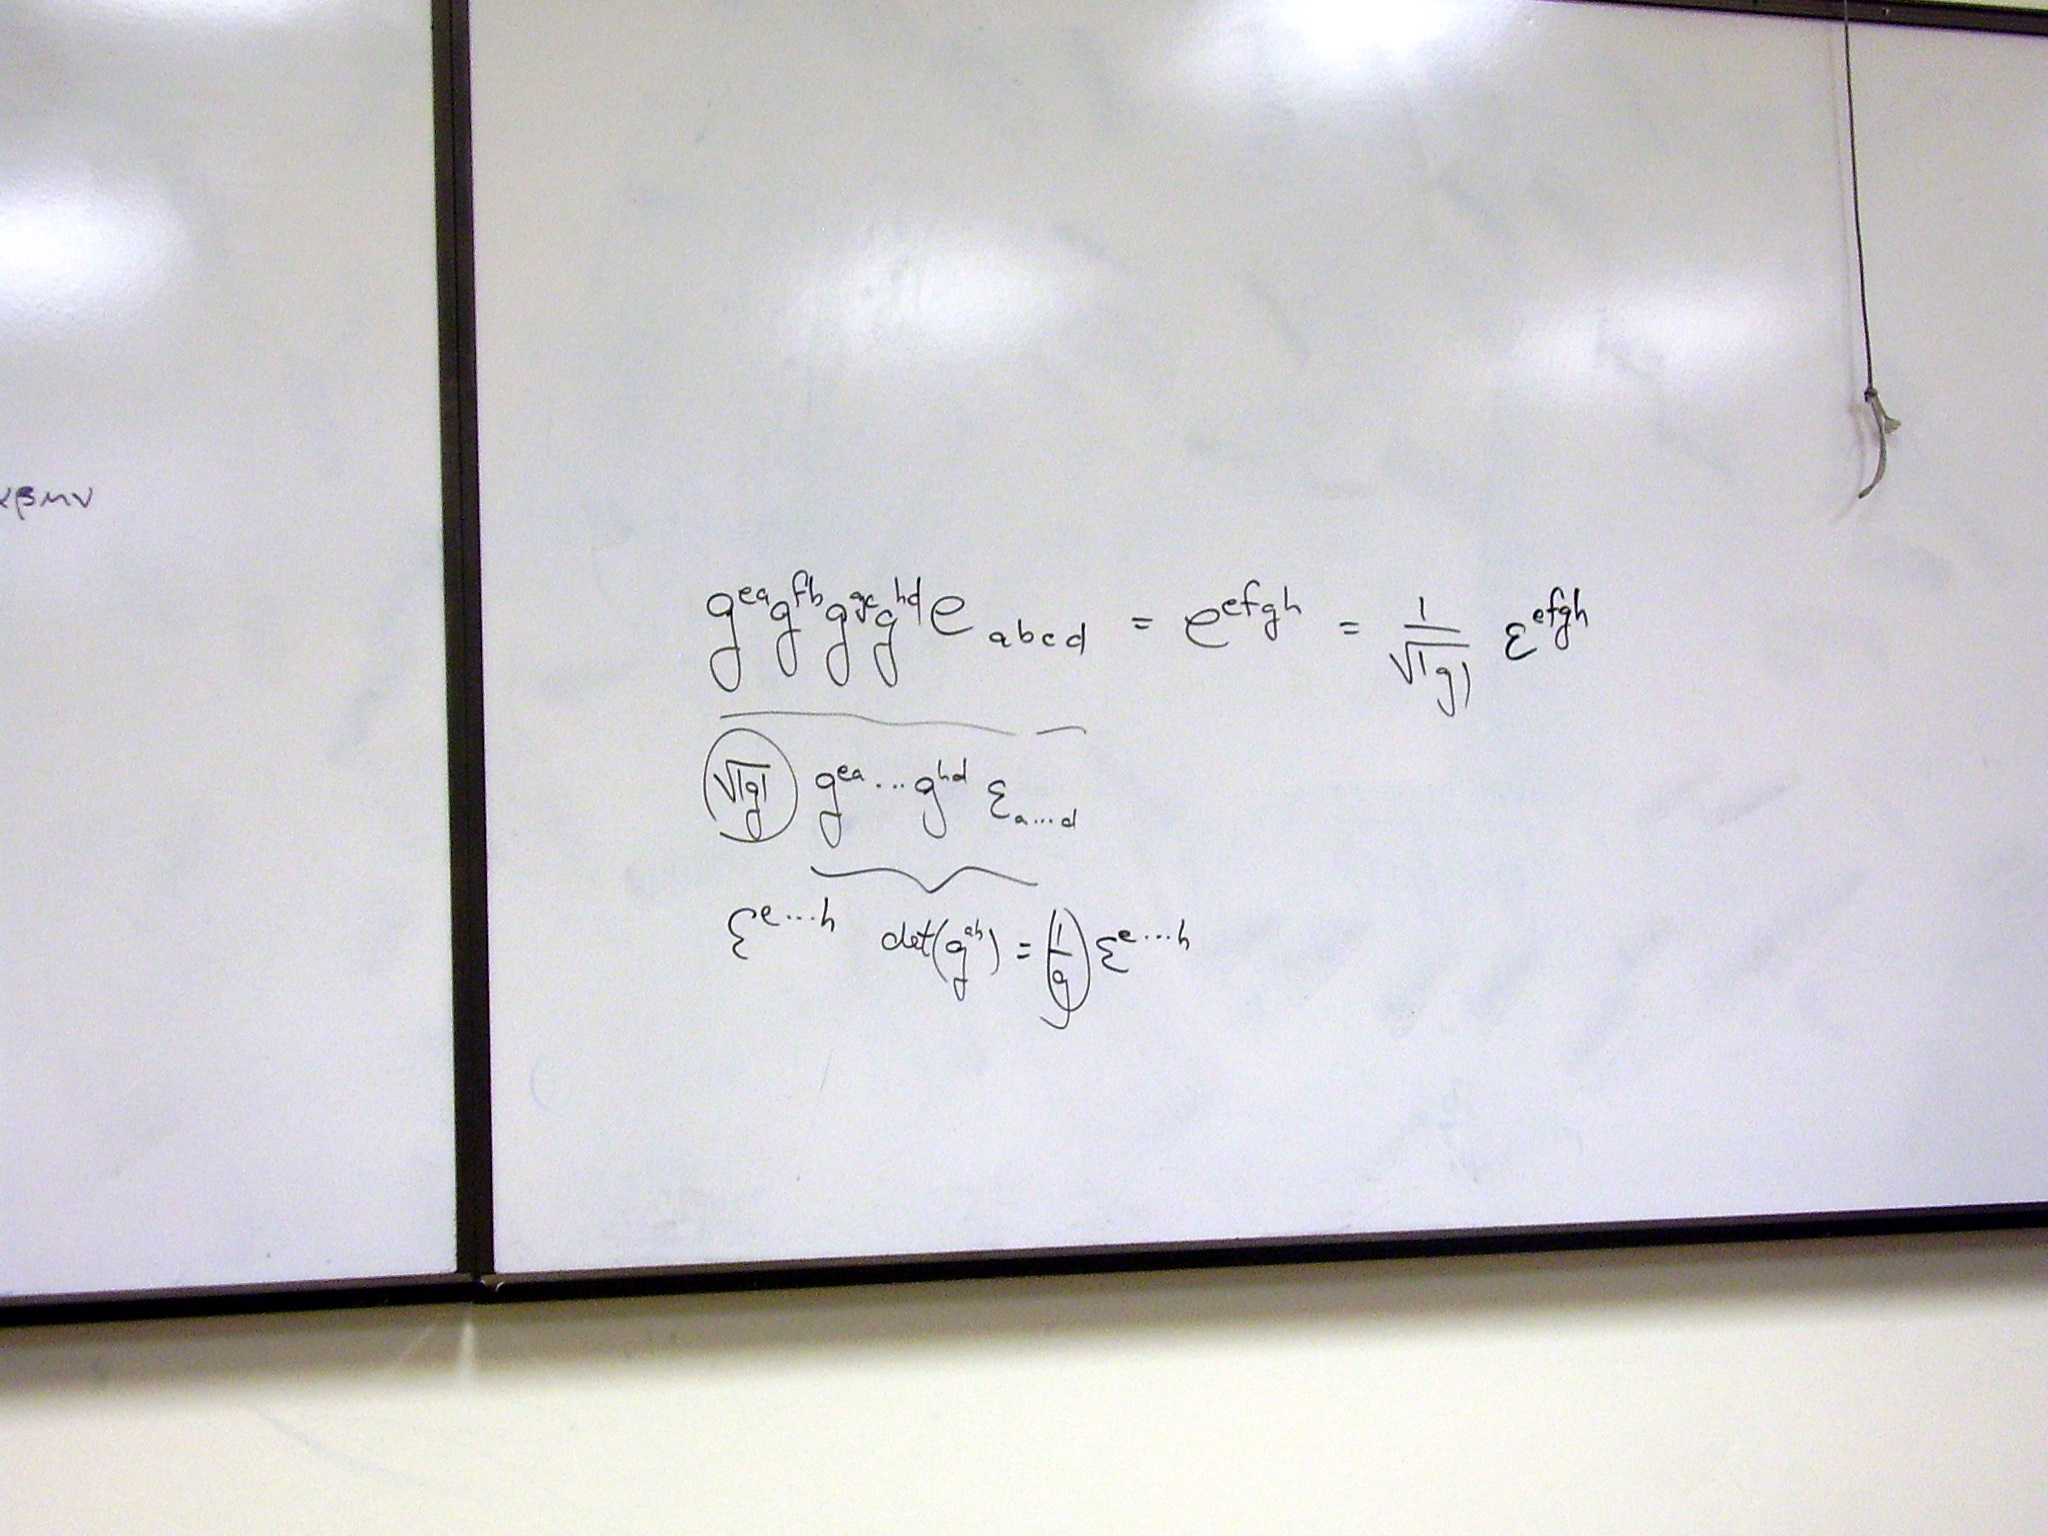 αβμν
g^{ea} g^{fb} g^{gc} g^{hd} e_{abcd} = e^{efgh} = \frac{1}{\sqrt{|g|}} ε^{efgh}
\sqrt{|g|} g^{ea} ... g^{hd} ε_{a...d}
ε^{e...h} det(g^{ab}) = \frac{1}{g} ε^{e...h}